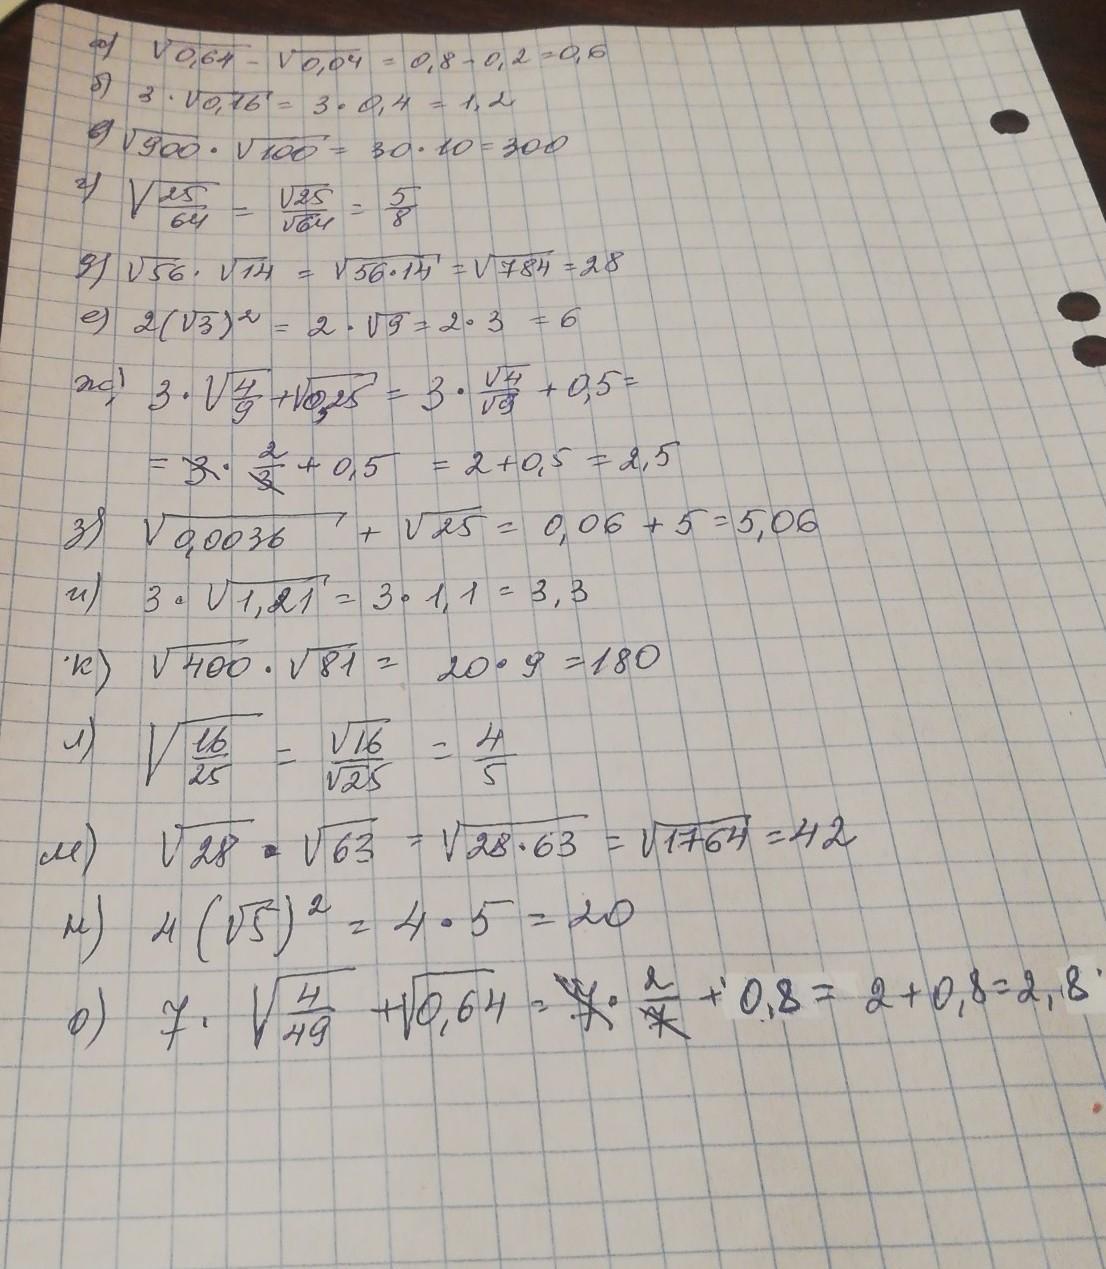 а) √0,64 - √0,04 = 0,8 - 0,2 = 0,6
б) 3 · √0,16 = 3 · 0,4 = 1,2
в) √900 · √100 = 30 · 10 = 300
г) √(25/64) = √25/√64 = 5/8
д) √56 · √14 = √(56·14) = √784 = 28
е) 2(√3)² = 2 · √9 = 2 · 3 = 6
ж) 3 · √(4/9) + √0,25 = 3 · √4/√9 + 0,5 =
= 3 · 2/3 + 0,5 = 2 + 0,5 = 2,5
з) √0,0036 + √25 = 0,06 + 5 = 5,06
и) 3 · √1,21 = 3 · 1,1 = 3,3
к) √400 · √81 = 20 · 9 = 180
л) √(16/25) = √16/√25 = 4/5
м) √28 · √63 = √(28·63) = √1764 = 42
н) 4(√5)² = 4 · 5 = 20
о) 7 · √(4/49) + √0,64 = 7 · 2/7 + 0,8 = 2 + 0,8 = 2,8